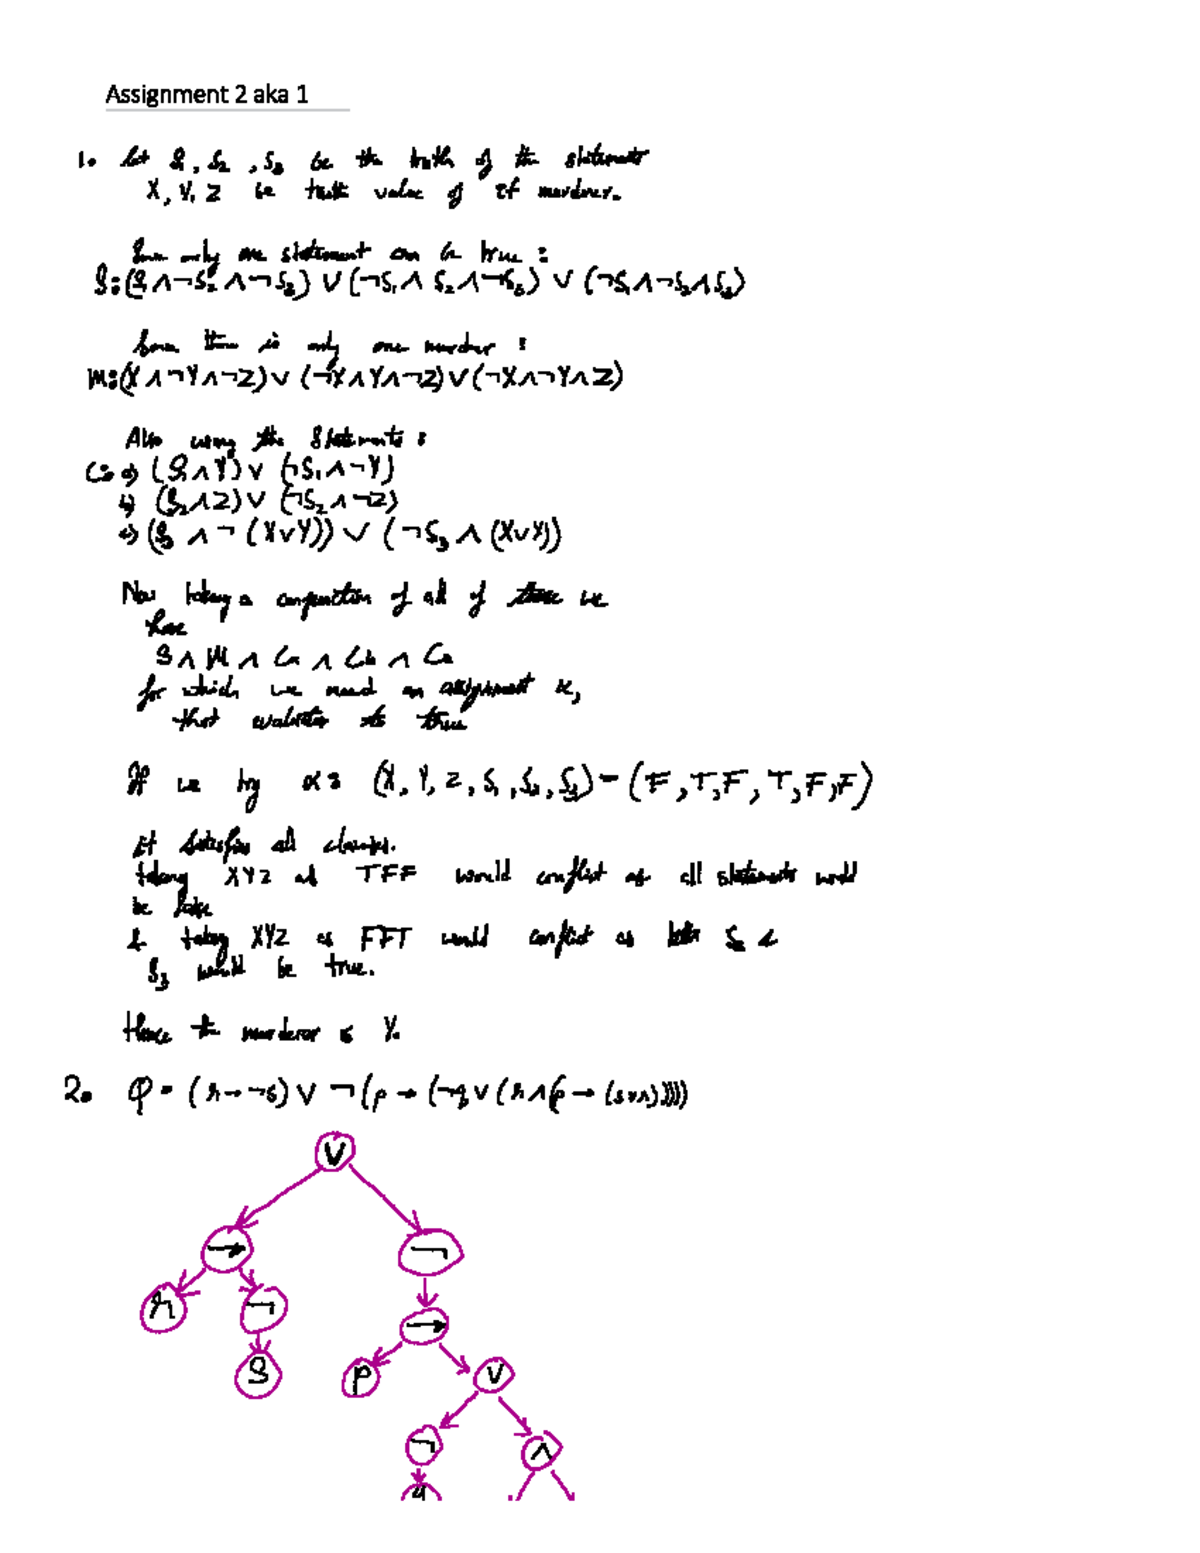 Assignment 2 aka 1
1. Let S₁, S₂, S₃ be the truth of the statements
X, Y, Z be truth value of if murderer.
Since only one statement can be true :
S: (S₁∧¬S₂∧¬S₃) ∨ (¬S₁∧S₂∧¬S₃) ∨ (¬S₁∧¬S₂∧S₃)
Since there is only one murder :
M: (X∧¬Y∧¬Z) ∨ (¬X∧Y∧¬Z) ∨ (¬X∧¬Y∧Z)
Also using the statements :
C: a) (S₁∧Y) ∨ (¬S₁∧¬Y)
b) (S₂∧Z) ∨ (¬S₂∧¬Z)
c) (S₃ ∧ ¬(X∨Y)) ∨ (¬S₃ ∧ (X∨Y))
Now taking a conjunction of all of these we
have
S ∧ M ∧ Ca ∧ Cb ∧ Cc
for which we need an assignment α,
that evaluates to true
If we try α: (X, Y, Z, S₁, S₂, S₃) = (F, T, F, T, F, F)
It satisfies all clauses.
taking XYZ as TFF would conflict as all statements would
be false
& taking XYZ as FFT would conflict as both S₂ &
S₃ would be true.
Hence the murderer is Y.
2. φ = (r → ¬s) ∨ ¬(p → (¬q ∨ (r ∧ (p → (s ∨ r)))))
∨
→ ¬
r ¬ →
s p ∨
¬ ∧
q